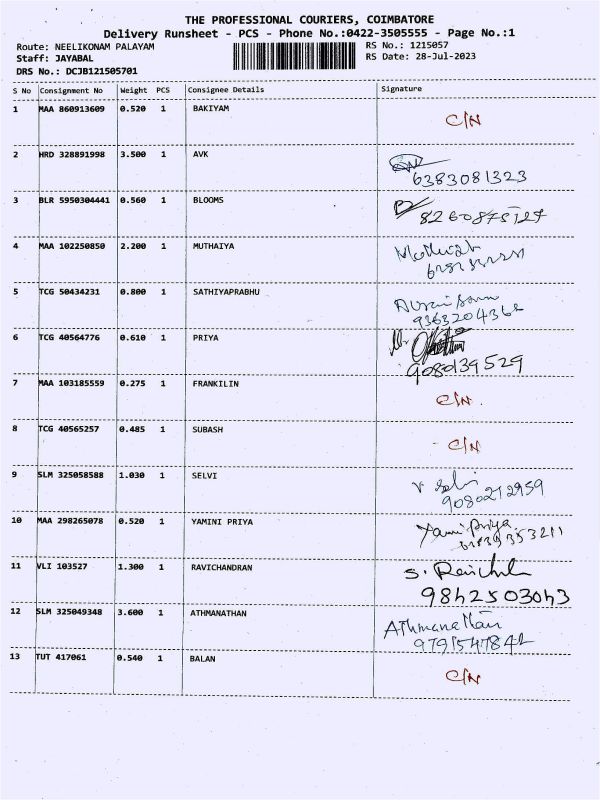 THE PROFESSIONAL COURIERS, COIMBATORE
Delivery Runsheet - PCS - Phone No.:0422-3505555 - Page No.:1
Route: NEELIKONAM PALAYAM RS No.: 1215057
Staff: JAYABAL RS Date: 28-Jul-2023
DRS No.: DCJB121505701
S No Consignment No Weight PCS Consignee Details Signature
1 MAA 860913609 0.520 1 BAKIYAM C/N
2 HRD 328891998 3.500 1 AVK
6383081323
3 BLR 5950304441 0.560 1 BLOOMS
8260875127
4 MAA 102250850 2.200 1 MUTHAIYA
5 TCG 50434231 0.800 1 SATHIYAPRABHU
6 TCG 40564776 0.610 1 PRIYA
9080139529
7 MAA 103185559 0.275 1 FRANKILIN C/N
8 TCG 40565257 0.485 1 SUBASH C/N
9 SLM 325058588 1.030 1 SELVI V Selvi
9080212959
10 MAA 298265078 0.520 1 YAMINI PRIYA
11 VLI 103527 1.300 1 RAVICHANDRAN
9842503043
12 SLM 325049348 3.600 1 ATHMANATHAN Athmanathan
13 TUT 417061 0.540 1 BALAN C/N